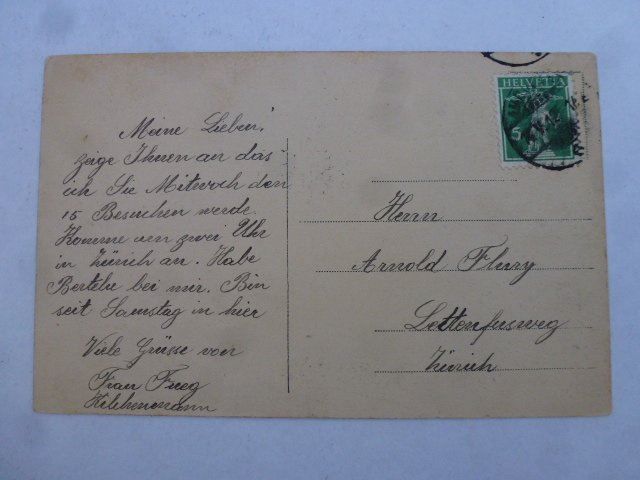 Meine Lieben!
zeige Ihnen an das
ich Sie Mitwoch den
15 Besuchen werde.
Komme um zwei Uhr
in Zürich an. Habe
bei mir. Bin
seit Samstag in hier
Viele Grüsse von
Frau Frieg
HELVETIA
5
Herrn
Arnold Flury
Lettenfussweg
Zürich